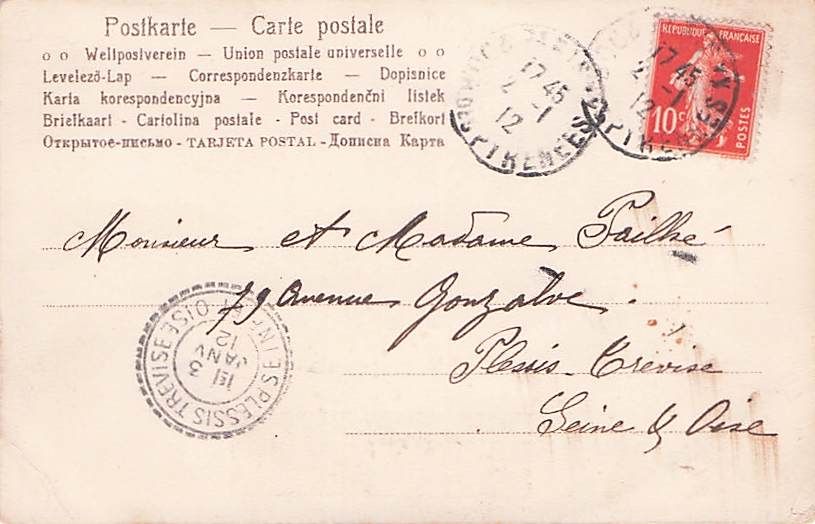 Postkarte — Carte postale
o o Weltpostverein - Union postale universelle o o
Levelező-Lap — Correspondenzkarte — Dopisnice
Karta korespondencyjna — Korespondenční lístek
Briefkaart - Cartolina postale - Post card - Brefkort
Открытое-письмо - TARJETA POSTAL - Дописна Карта
17 45
2 - 1
12
PYRENEES
REPUBLIQUE FRANÇAISE
10c
POSTES
17 45
2 - 1
12
Monsieur et Madame Pailhé
79 avenue Gonzalve.
Plessis-Trévise
Seine & Oise
PLESSIS TREVISE
SEINE ET OISE
3
JANV
12